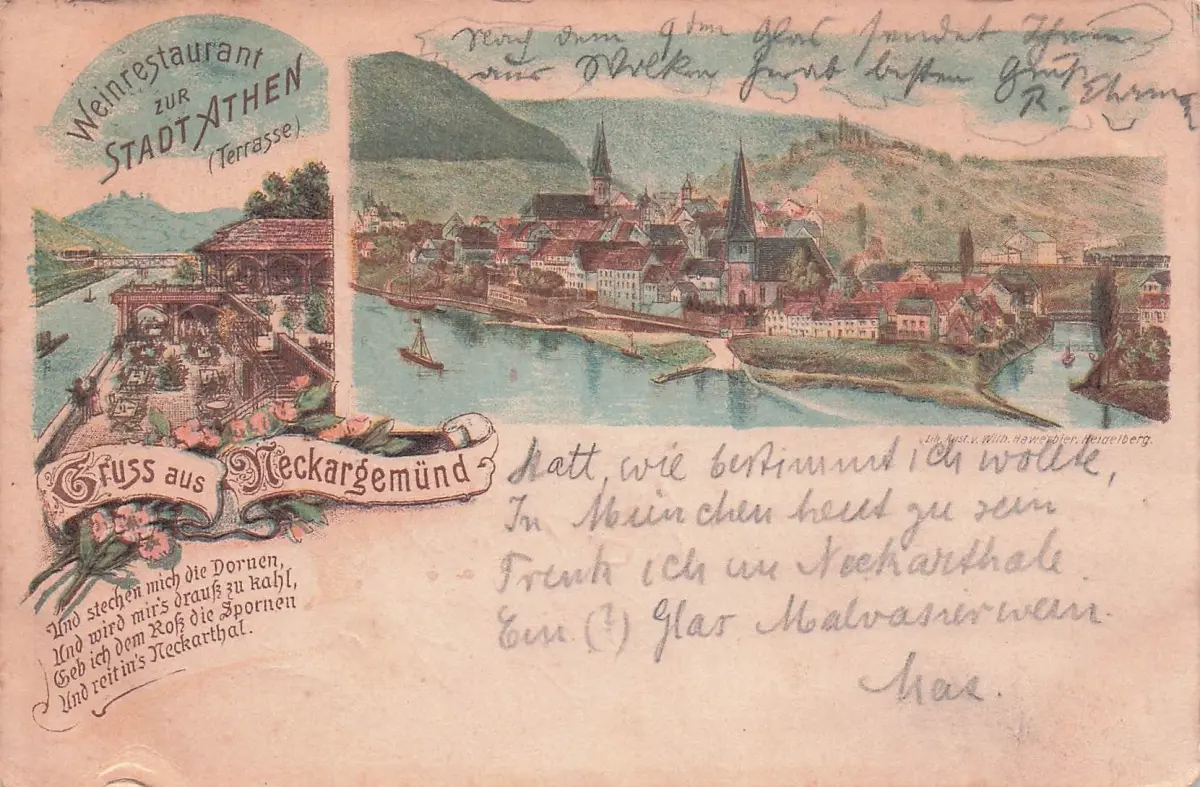 Weinrestaurant
ZUR
STADT ATHEN
(Terrasse)
Nach dem 9ten Glas sendet Ihnen
aus Wolken herab besten Gruß
R.
Lith. Anst. v. Wilh. Hawerbier, Heidelberg.
Gruss aus Neckargemünd
Und stechen mich die Dornen,
Und wird mir's drauß zu kahl,
Geb ich dem Roß die Spornen
Und reit in's Neckarthal.
Statt, wie bestimmt ich wollte,
In München heut zu sein
Trink ich im Neckarthale.
Ein (?) Glas Malvasierwein.